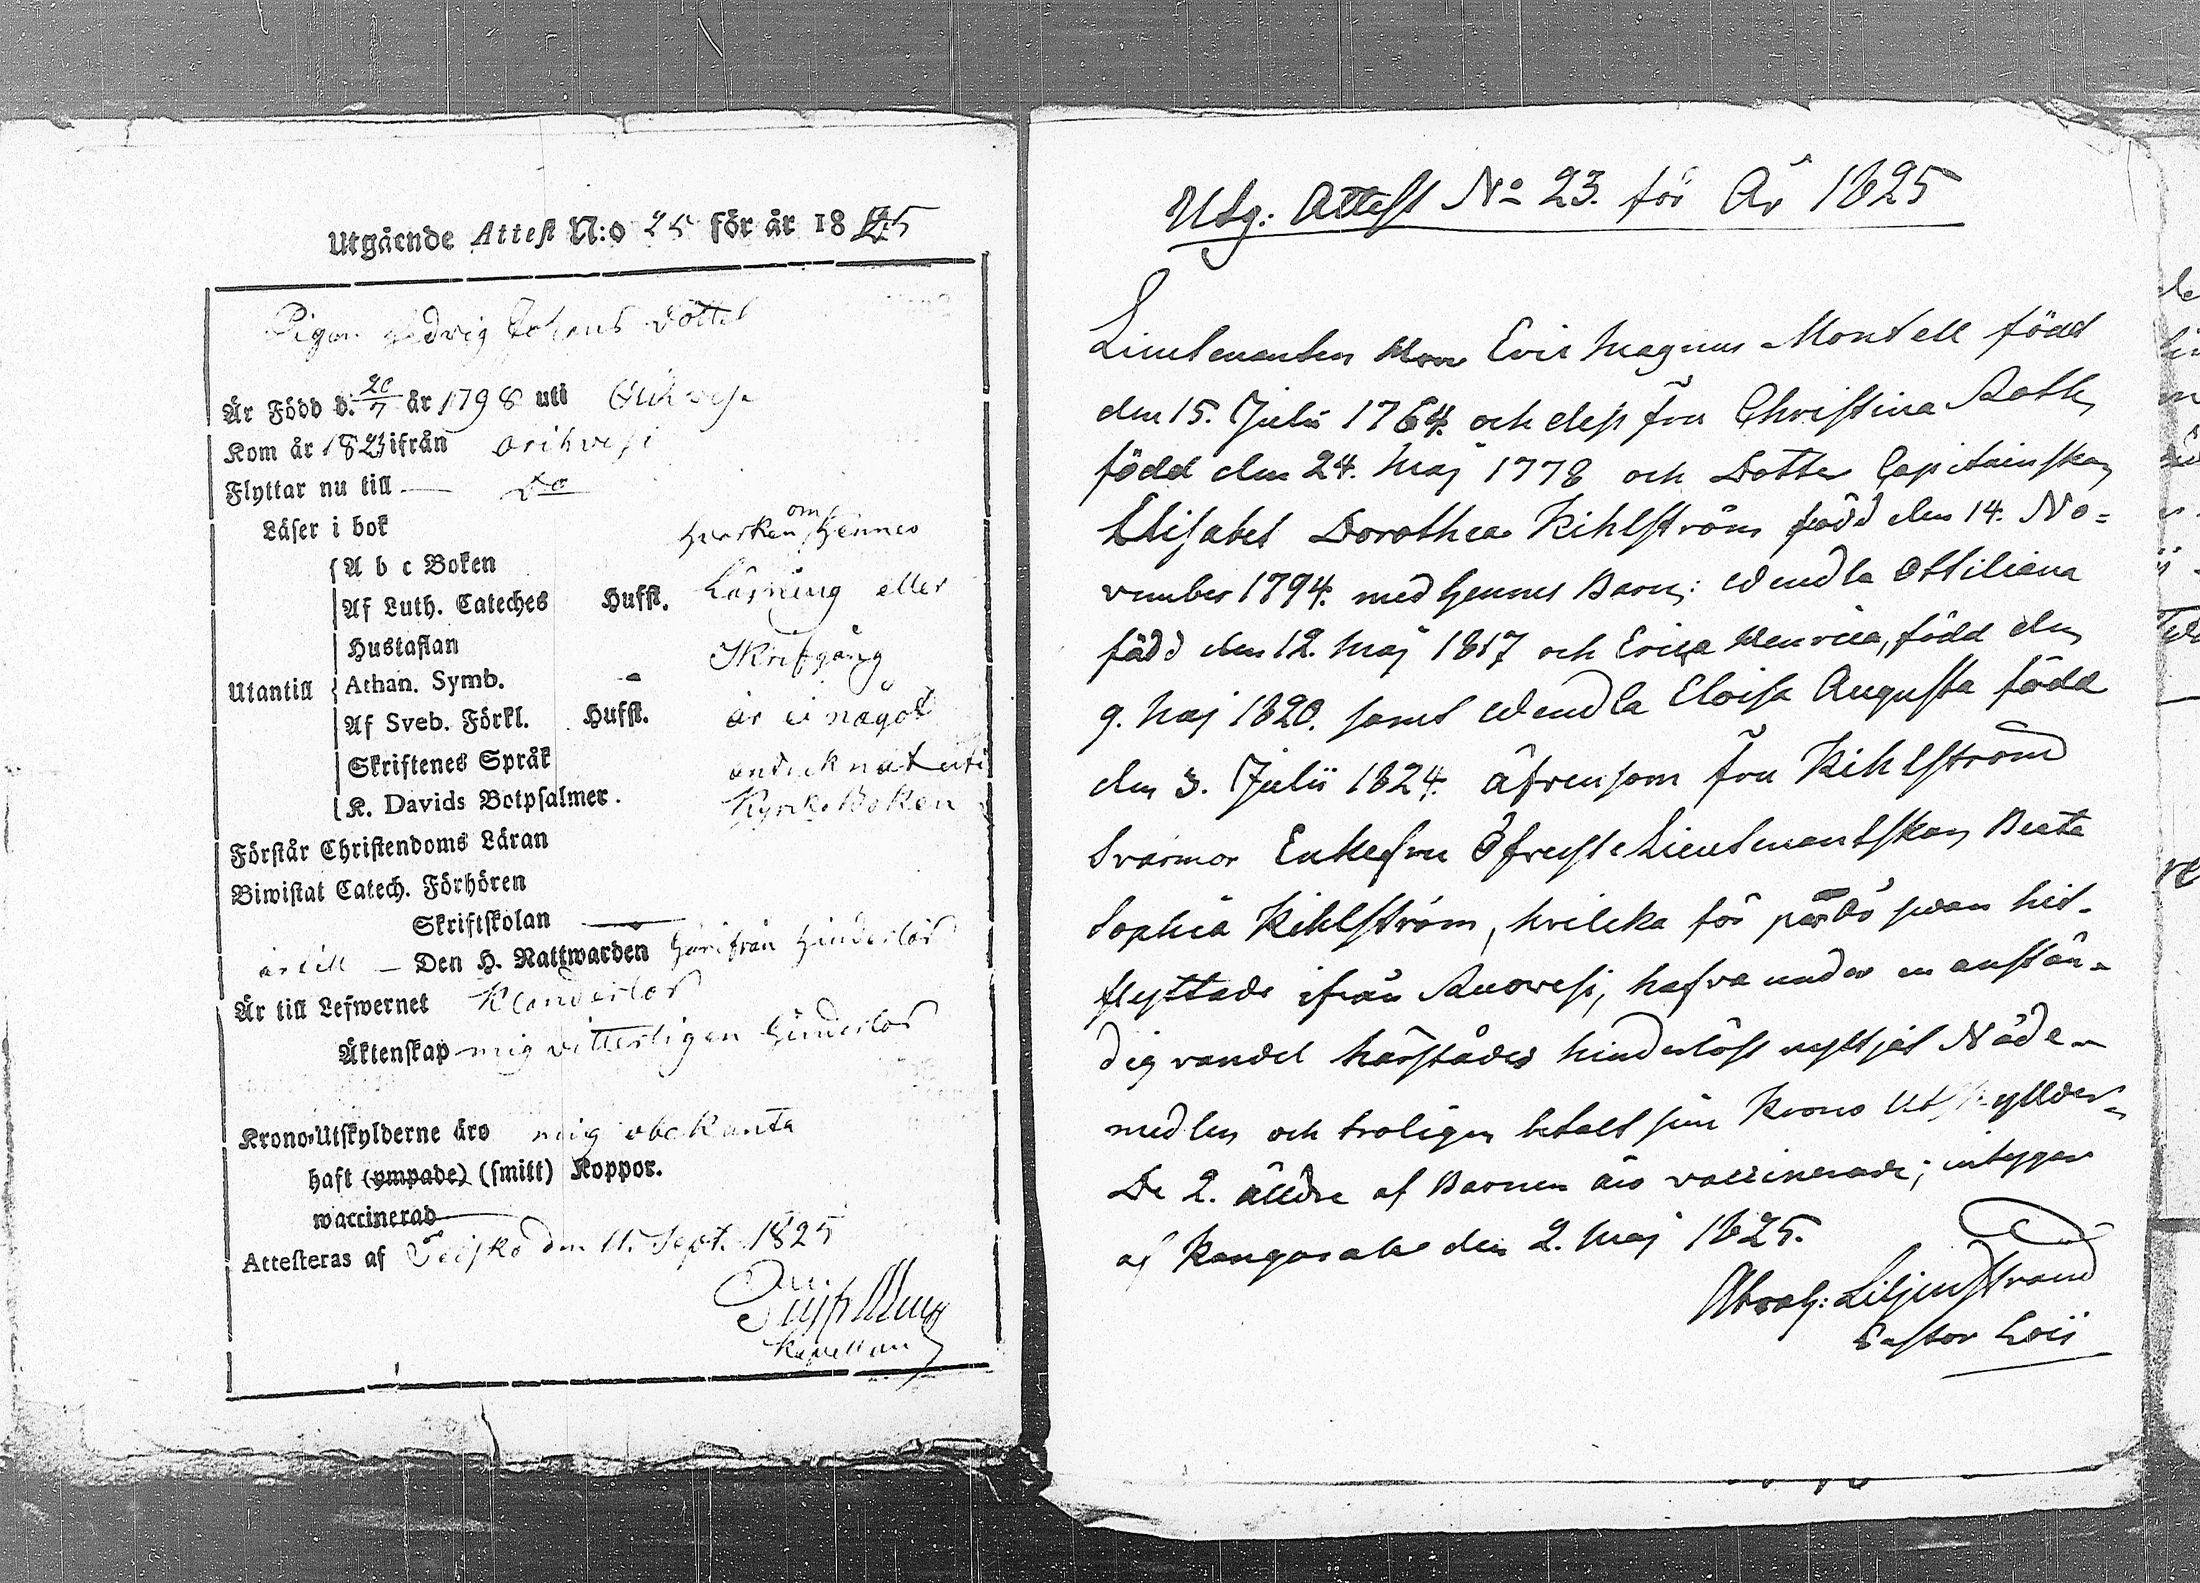 Utgående Attest N:o 25 för år 1825
Pigan Hedvig Johans Dotter
Är Född d. 20/7 år 1798 uti Orihvesi
Kom år 1823 ifrån Orihvesi
Flyttar nu till — Do
Läser i bok
Hvarken om Hennes
A b c Boken
Af Luth. Cateches Husst. Läsning eller
Hustaflan Skrifgång
Utantill Athan. Symb.
Af Sveb. Förkl. Husst. är ei något
Skriftenes Språk antecknat uti
K. Davids Botpsalmer. Kyrko Boken
Förstår Christendoms Läran
Biwistat Catech. Förhören
Skriftskolan —
är till — Den H. Nattwarden härifrån hinderlös
Är till Lefwernet Klanderlös
Äktenskap mig vitterligen hinderlös
Krono-Utskylderne äro mig obekanta
haft (ympade) (smitt) Koppor.
waccinerad
Attesteras af Teisko den 11. Sept. 1825
Kapellan
Utg: Attest No 23. för År 1825
Lieutenanten Herr Eric Magnus Montell född
den 15. Julii 1764. och dess Fru Christina Roth,
född den 24. Maj 1778 och Dotter Capitainskan
Elisabet Dorothea Kihlström född den 14. No=
vember 1794. med hennes Barn: Wendla Ottiliana
född den 12. Maj 1817 och Erica Henrica, född den
9. Maj 1820. samt Wendla Eloisa Augusta född
den 3. Julii 1824. äfvensom Fru Kihlströms
Svärmor Enkefru Öfverste Lieutenantskan Beata
Sophia Kihlström, hvilcka för par år sedan hit-
flyttade ifrån Ruovesi, hafva under en anstän-
dig vandel härstädes hinderlöst nyttjat Nåde-
medlen och troligen betalt sina Krono Utskylder-
De 2. äldre af Barnen äro vaccinerade; intygar
af Kangasala den 2. Maj 1825.
Abrah: Liljenstrand
Pastor Loci